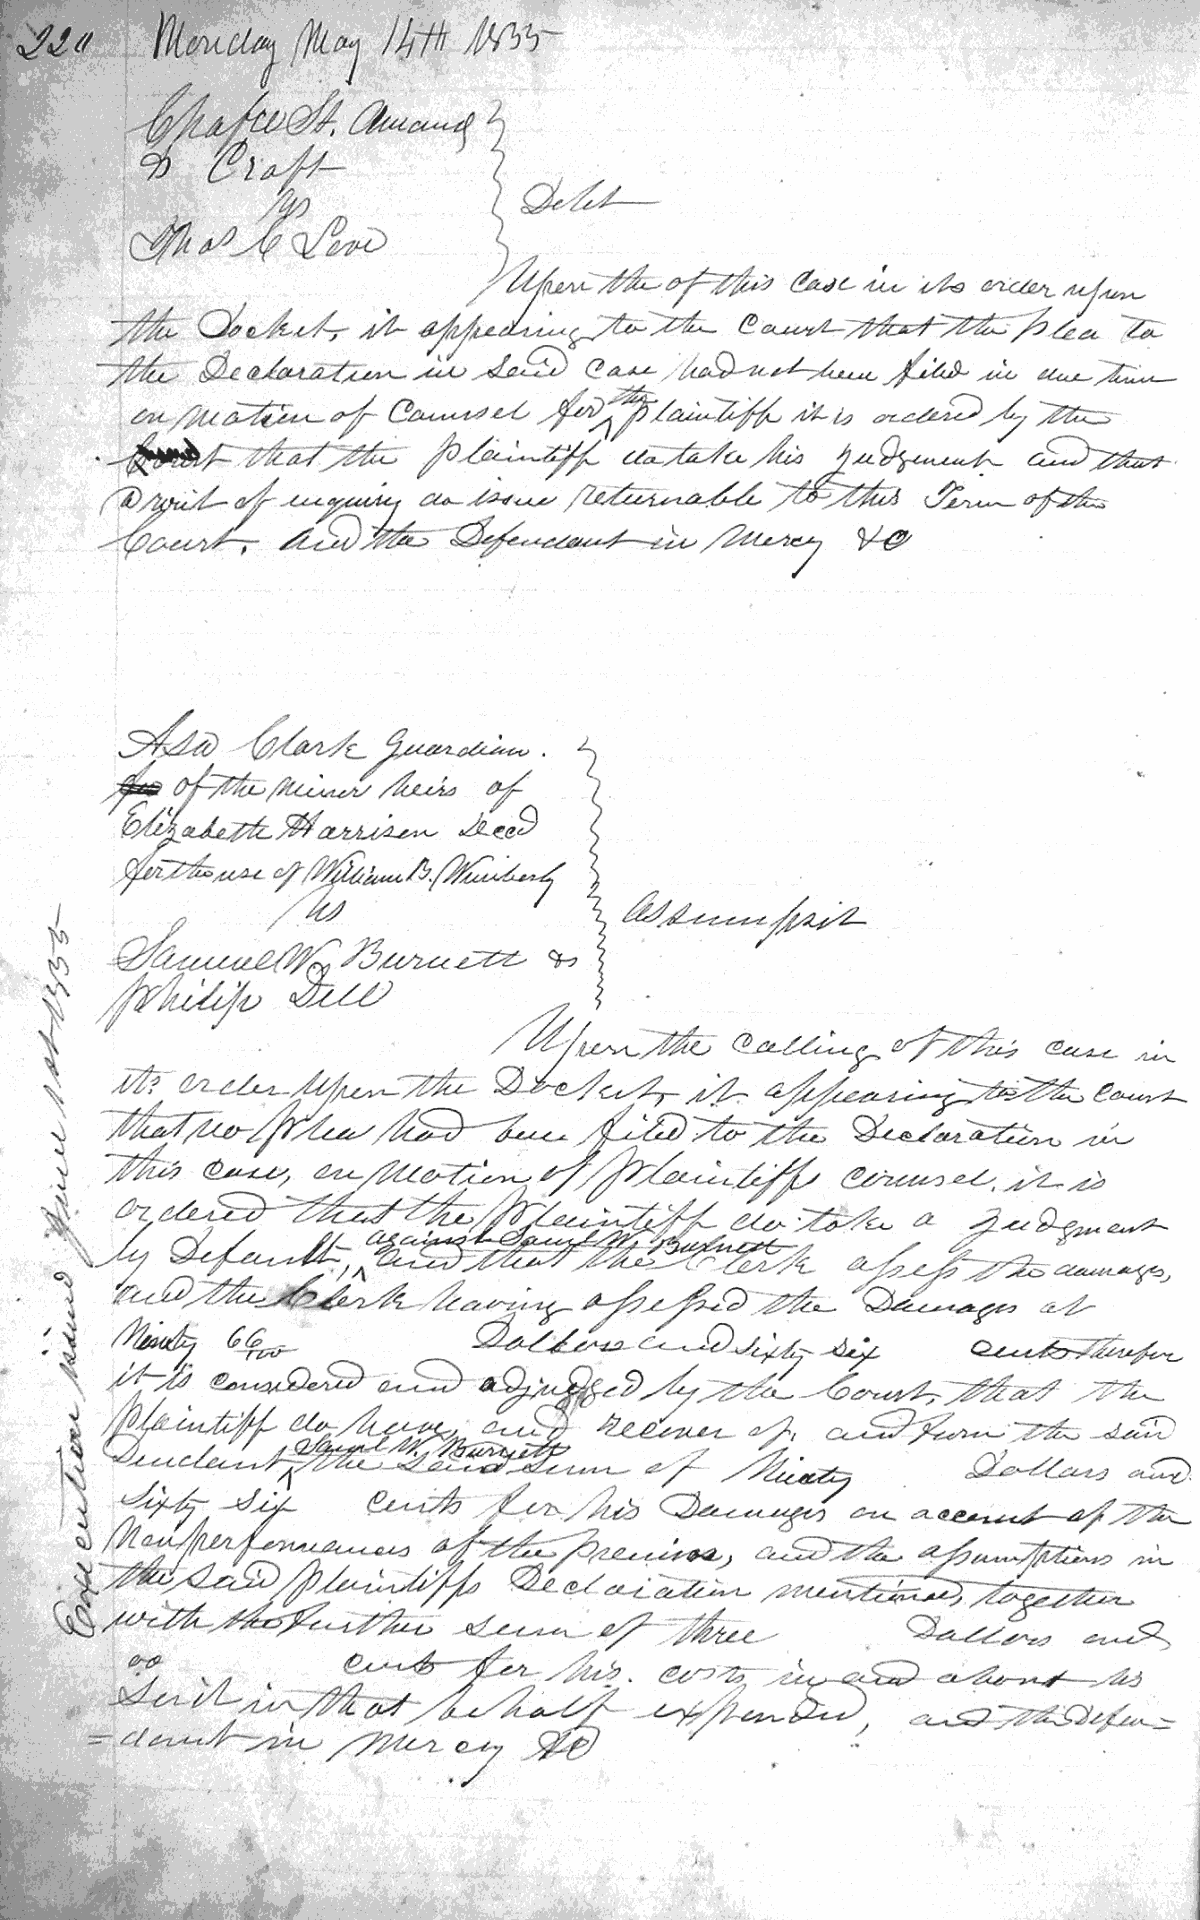 220 Monday May 14TH 1855
Chafee St. Amand
& Craft
vs
Thos C Love
Debt
Upon the of this case in its order upon
the Docket, it appearing to the Court that the plea to
the Declaration in said case had not been filed in due time
on motion of Counsel for the plaintiff it is ordered by the
Court that the plaintiff do take his judgement and that
a writ of inquiry do issue returnable to this Term of the
Court. and the Defendant in Mercy &C
Asa Clark Guardian.
of the minor heirs of
Elizabeth Harrison Decd
for the use of William B. Wimberly
vs
Samuel W. Burnett &
Philip Dell
Assumpsit
Upon the calling of this case in
its order upon the Docket, it appearing to the court
that no plea had been filed to the Declaration in
this case, on motion of plaintiffs counsel. it is
ordered that the plaintiff do take a judgment
by Default, against Saml W. Burnett and that the Clerk assess the damages,
and the Clerk having assessed the Damages at
Ninty 66/100 Dollars and sixty six cents therefor
it is considered and adjudged by the Court, that the
plaintiff do have and recover of, and from the said
Dendant, Saml W. Burnett the said sum of Ninty Dollars and
Sixty Six cents for his Damages on account of the
Nonperformances of the premises, and the assumptions in
the said plaintiffs Declaration mentioned, together
with the further sum of three Dollars and
oo cents for his. costs in and about his
Suit in that behalf expended, and the Defen=
=dant in Mercy &C
Execution issued June 1st 1855